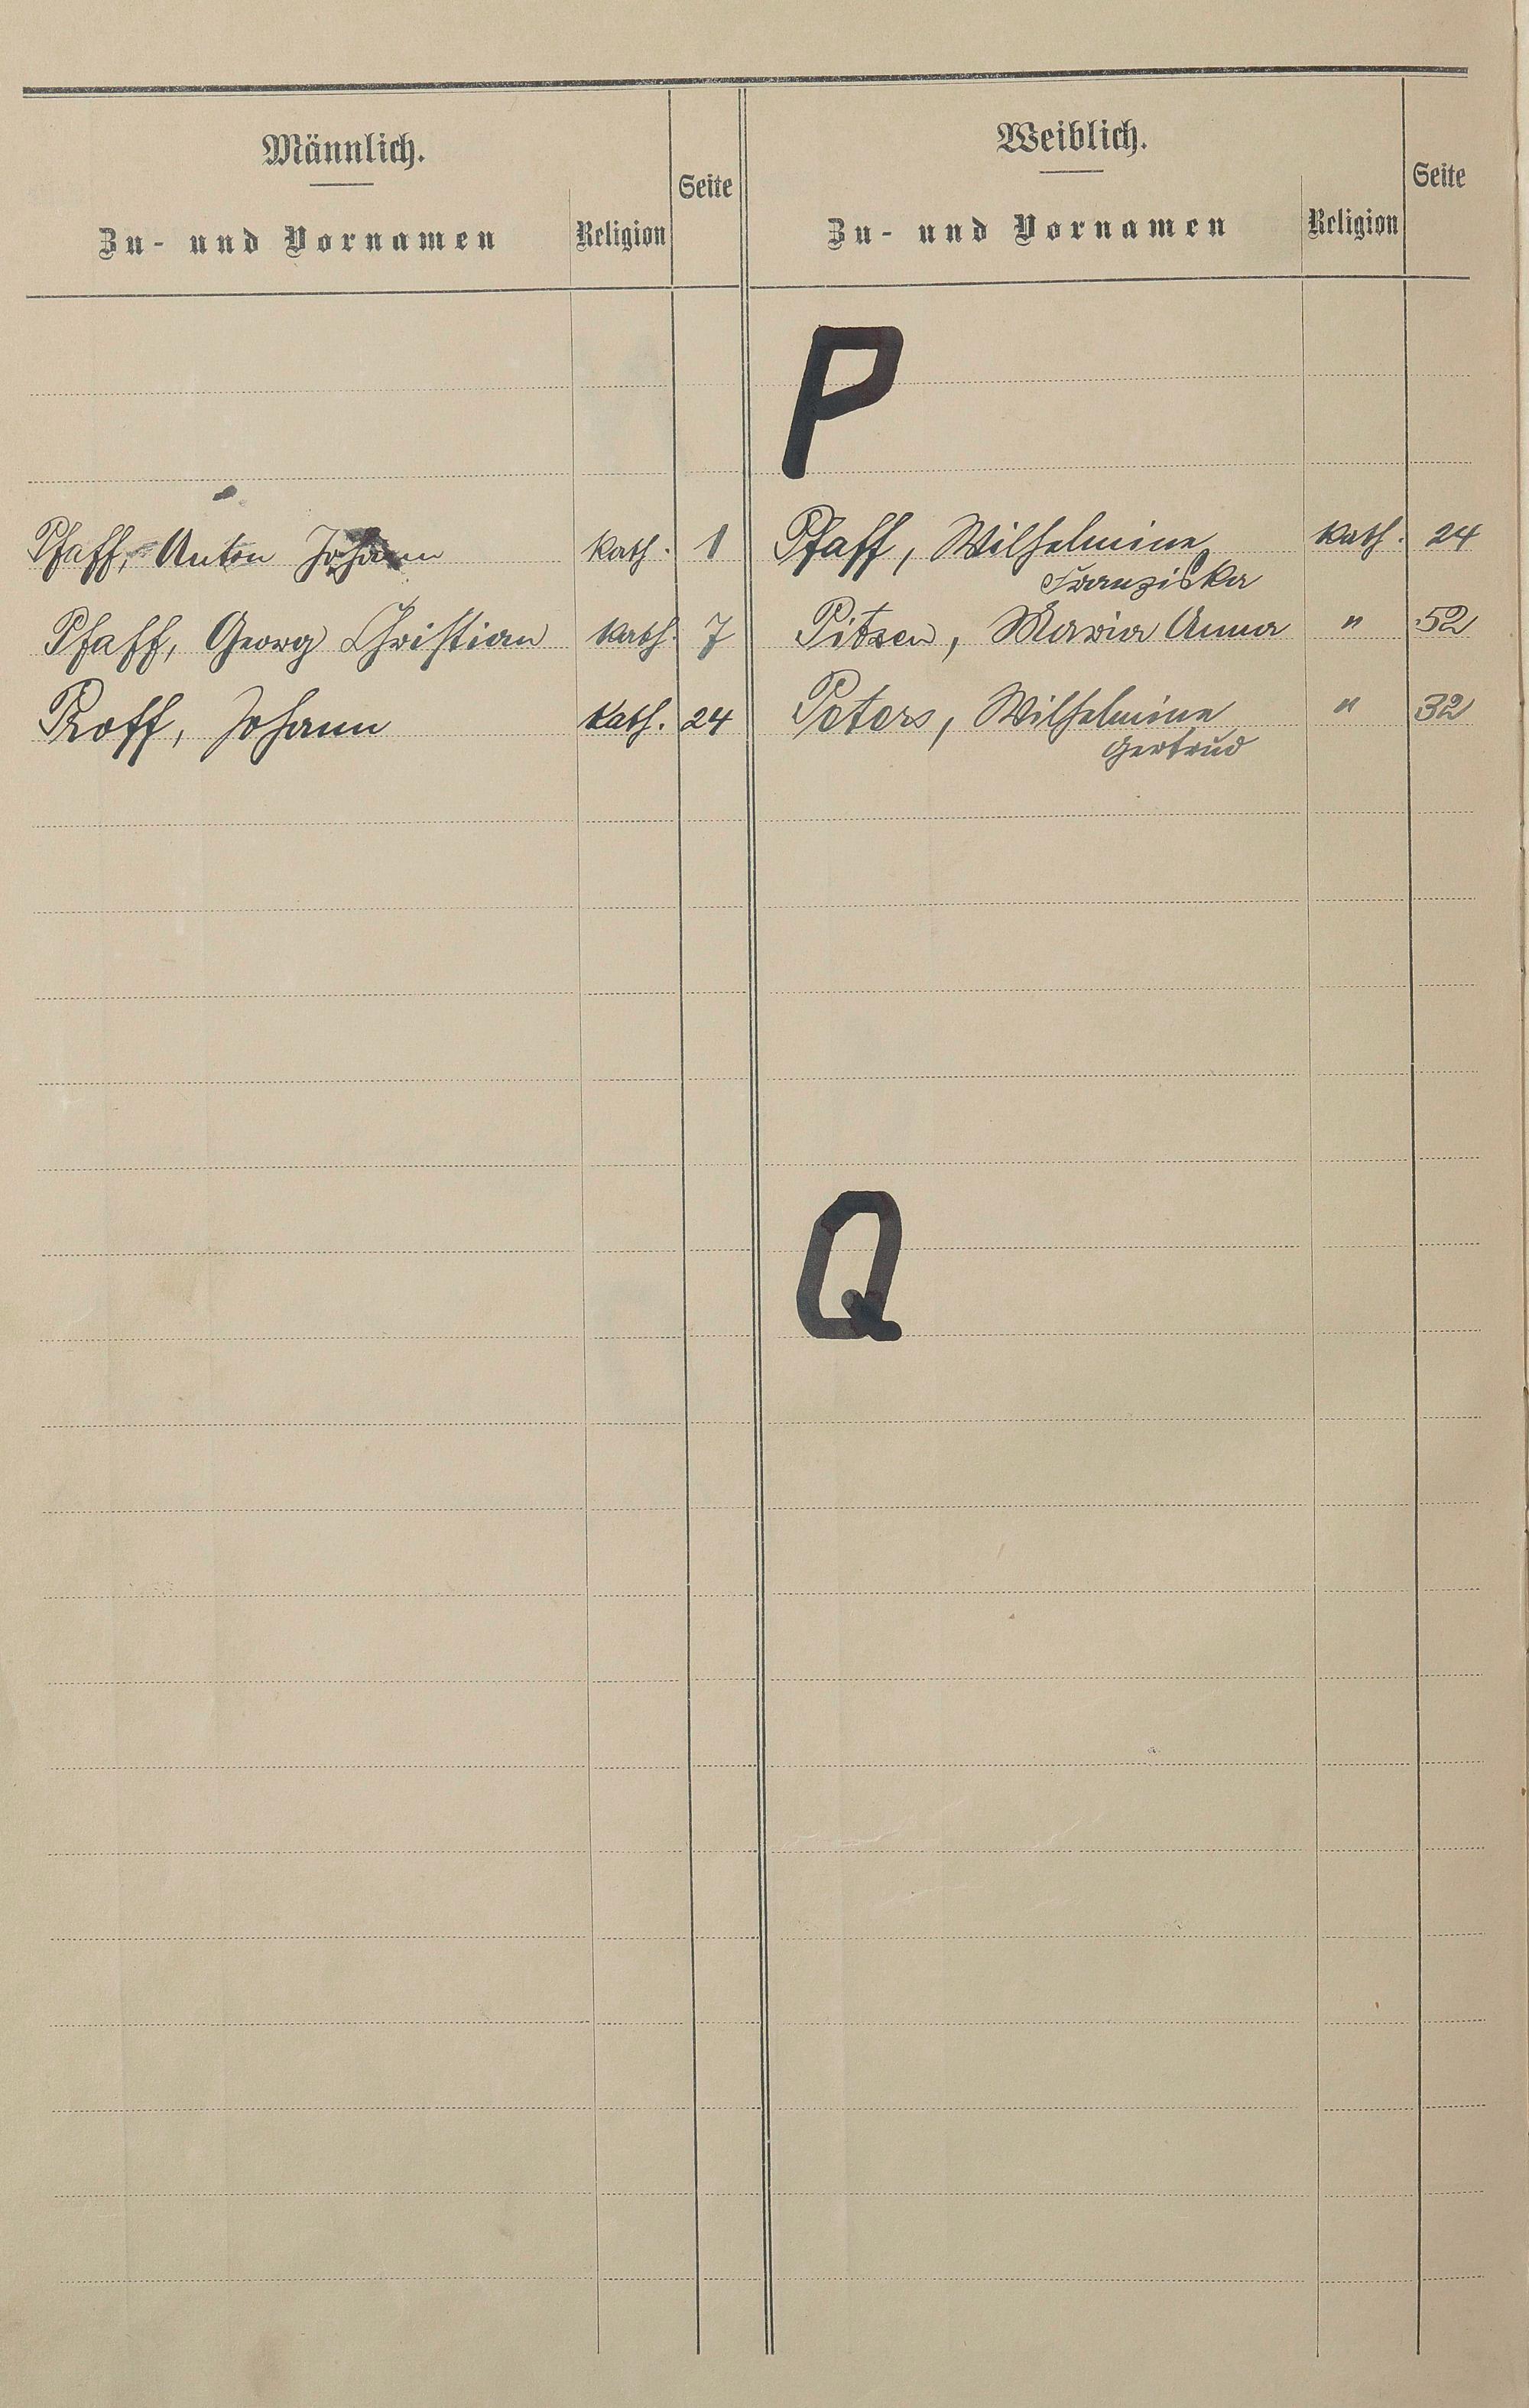 Männlich.
Zu- und Vornamen
Religion
Seite
Weiblich.
Zu- und Vornamen
Religion
Seite
P
Pfaff, Anton Johann kath. 1
Pfaff, Georg Christian kath. 7
Proff, Johann kath. 24
Pfaff, Wilhelmine kath. 24
Franziska
Pitzen, Maria Anna " 52
Peters, Wilhelmine " 32
Gertrud
Q